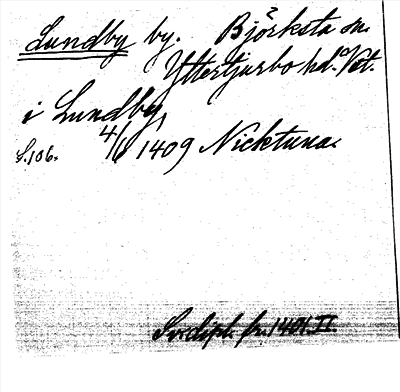 Lundby by. Björksta sn.
Yttertjurbo hd. Vst.
i Lundby,
S. 106. 4/6 1409 Nicktuna.
Sv. dipl. fr. 1401 II